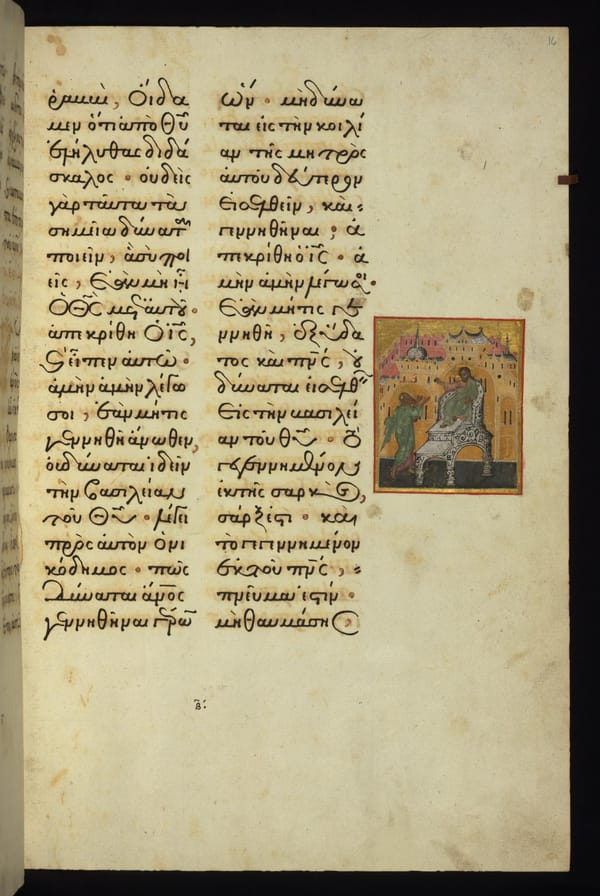 16
ραββι, Οἴδα
μεν ὅτι ἀπὸ Θῦ
ἐλήλυθας διδά
σκαλος · οὐδεὶς
γὰρ ταῦτα τὰ
σημεῖα δύναται
ποιεῖν, ἃ σὺ ποι
εῖς, ἐὰν μὴ ἦ
ὁ Θς μετ' αὐτοῦ ·
ἀπεκρίθη ὁ Ις,
καὶ εἶπεν αὐτῷ ·
ἀμὴν ἀμὴν λέγω
σοι, ἐὰν μή τις
γεννηθῆ ἄνωθεν,
οὐ δύναται ἰδεῖν
τὴν βασιλείαν
τοῦ Θῦ · λέγει
πρὸς αὐτὸν ὁ νι
κόδημος · πῶς
δύναται ἄνος
γεννηθῆναι γέρων
ὤν · μὴ δύνα
ται εἰς τὴν κοιλί
αν τῆς μητρὸς
αὐτοῦ δεύτερον
εἰσελθεῖν, καὶ
γεννηθῆναι ; ἀ
πεκρίθη ὁ Ις · ἀ
μὴν ἀμὴν λέγω σοι ·
ἐὰν μή τις γε
ννηθῆ, ἐξ ὕδα
τος καὶ πνς, οὐ
δύναται εἰσελθεῖν
εἰς τὴν βασιλεί
αν τοῦ Θῦ · τὸ
γεγεννημένον
ἐκ τῆς σαρκὸς,
σάρξ ἐστι · καὶ
τὸ γεγεννημένον
ἐκ τοῦ πνς,
πνεῦμα ἐστιν ·
μὴ θαυμάσης
β